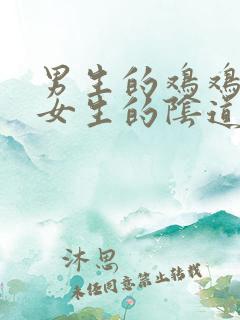 男生的鸡鸡
女生的陰道
沐思
未经同意禁止转载